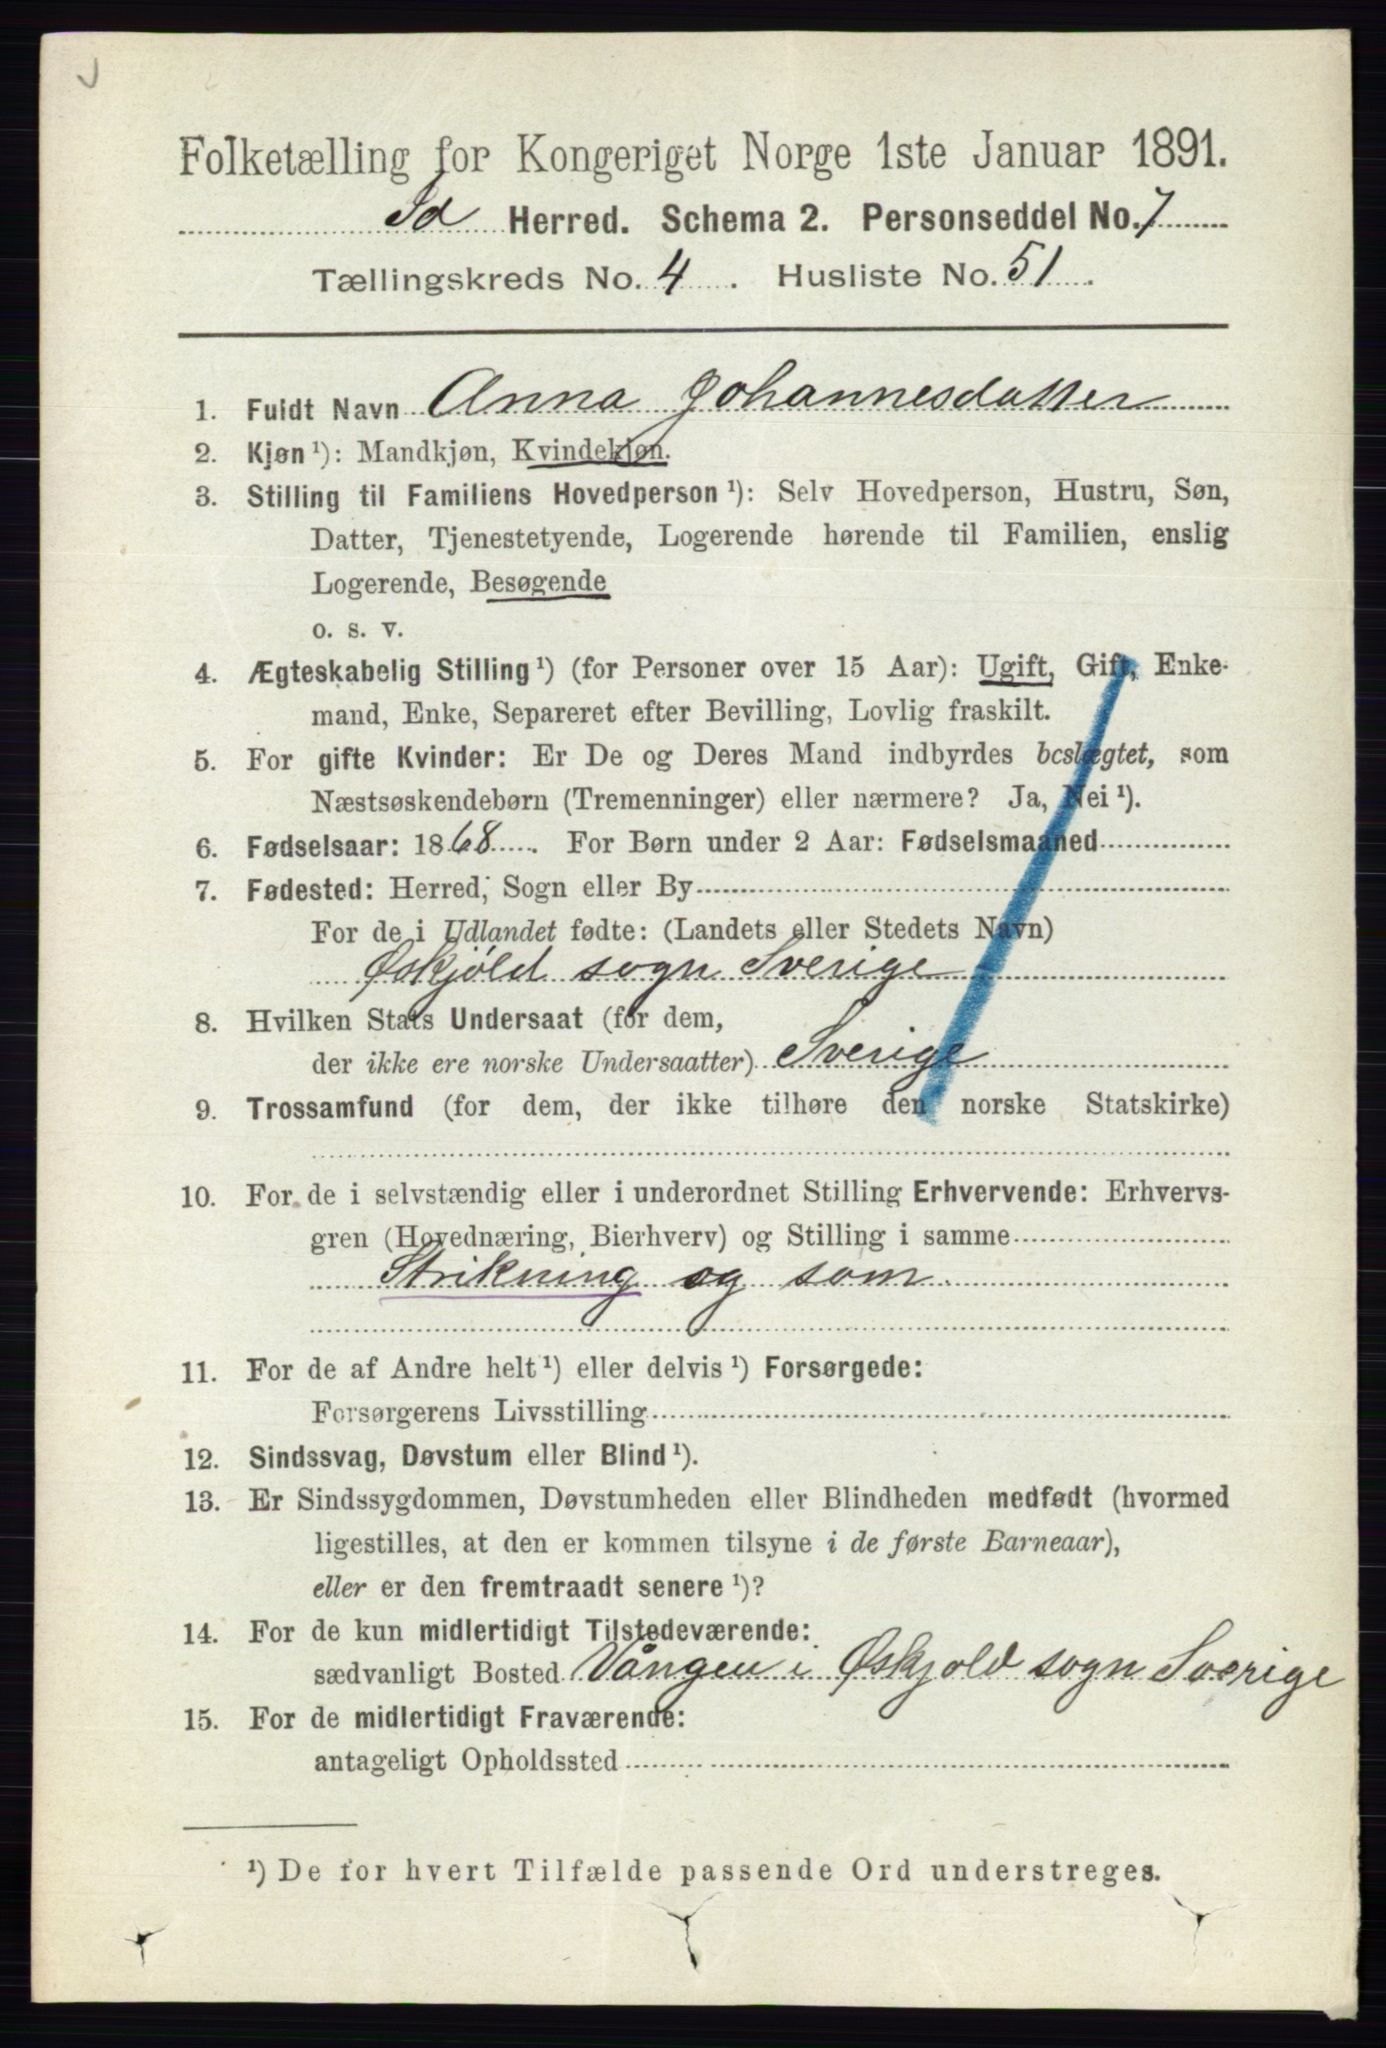 Folketælling for Kongeriget Norge 1ste Januar 1891.
Id Herred. Schema 2. Personseddel No. 7
Tællingskreds No. 4. Husliste No. 51.
1. Fuldt Navn Anna Johannesdatter
2. Kjøn ¹): Mandkjøn, Kvindekjøn.
3. Stilling til Familiens Hovedperson ¹): Selv Hovedperson, Hustru, Søn,
Datter, Tjenestetyende, Logerende hørende til Familien, enslig
Logerende, Besøgende
o. s. v.
4. Ægteskabelig Stilling ¹) (for Personer over 15 Aar): Ugift, Gift, Enke-
mand, Enke, Separeret efter Bevilling, Lovlig fraskilt.
5. For gifte Kvinder: Er De og Deres Mand indbyrdes beslægtet, som
Næstsøskendebørn (Tremenninger) eller nærmere? Ja, Nei ¹).
6. Fødselsaar: 1868. For Børn under 2 Aar: Fødselsmaaned
7. Fødested: Herred, Sogn eller By
For de i Udlandet fødte: (Landets eller Stedets Navn)
Øskjöld sogn Sverige
8. Hvilken Stats Undersaat (for dem,
der ikke ere norske Undersaatter) Sverige
9. Trossamfund (for dem, der ikke tilhøre den norske Statskirke)
10. For de i selvstændig eller i underordnet Stilling Erhvervende: Erhvervs-
gren (Hovednæring, Bierhverv) og Stilling i samme
Strikning og søm
11. For de af Andre helt ¹) eller delvis ¹) Forsørgede:
Forsørgerens Livsstilling
12. Sindssvag, Døvstum eller Blind ¹).
13. Er Sindssygdommen, Døvstumheden eller Blindheden medfødt (hvormed
ligestilles, at den er kommen tilsyne i de første Barneaar),
eller er den fremtraadt senere ¹)?
14. For de kun midlertidigt Tilstedeværende:
sædvanligt Bosted Vången i Øskjold sogn Sverige
15. For de midlertidigt Fraværende:
antageligt Opholdssted
¹) De for hvert Tilfælde passende Ord understreges.